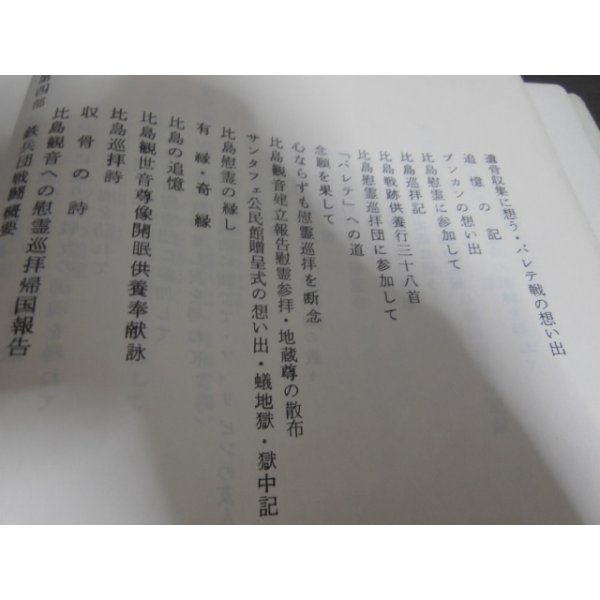 遺骨収集に想う・バレテ戦の想い出
追憶の記
ブンカンの想い出
比島慰霊に参加して
比島巡拝記
比島戦跡供養行三十八首
比島慰霊巡拝団に参加して
「バレテ」への道
念願を果して
心ならずも慰霊巡拝を断念
比島観音建立報告慰霊参拝・地蔵尊の散布
サンタフェ公民館贈呈式の想い出・蟻地獄・獄中記
比島慰霊の縁し
有縁・奇縁
比島の追憶
比島観世音尊像開眼供養奉献詠
比島巡拝詩
収骨の詩
比島観音への慰霊巡拝帰国報告
第四部
鉄兵団戦闘概要